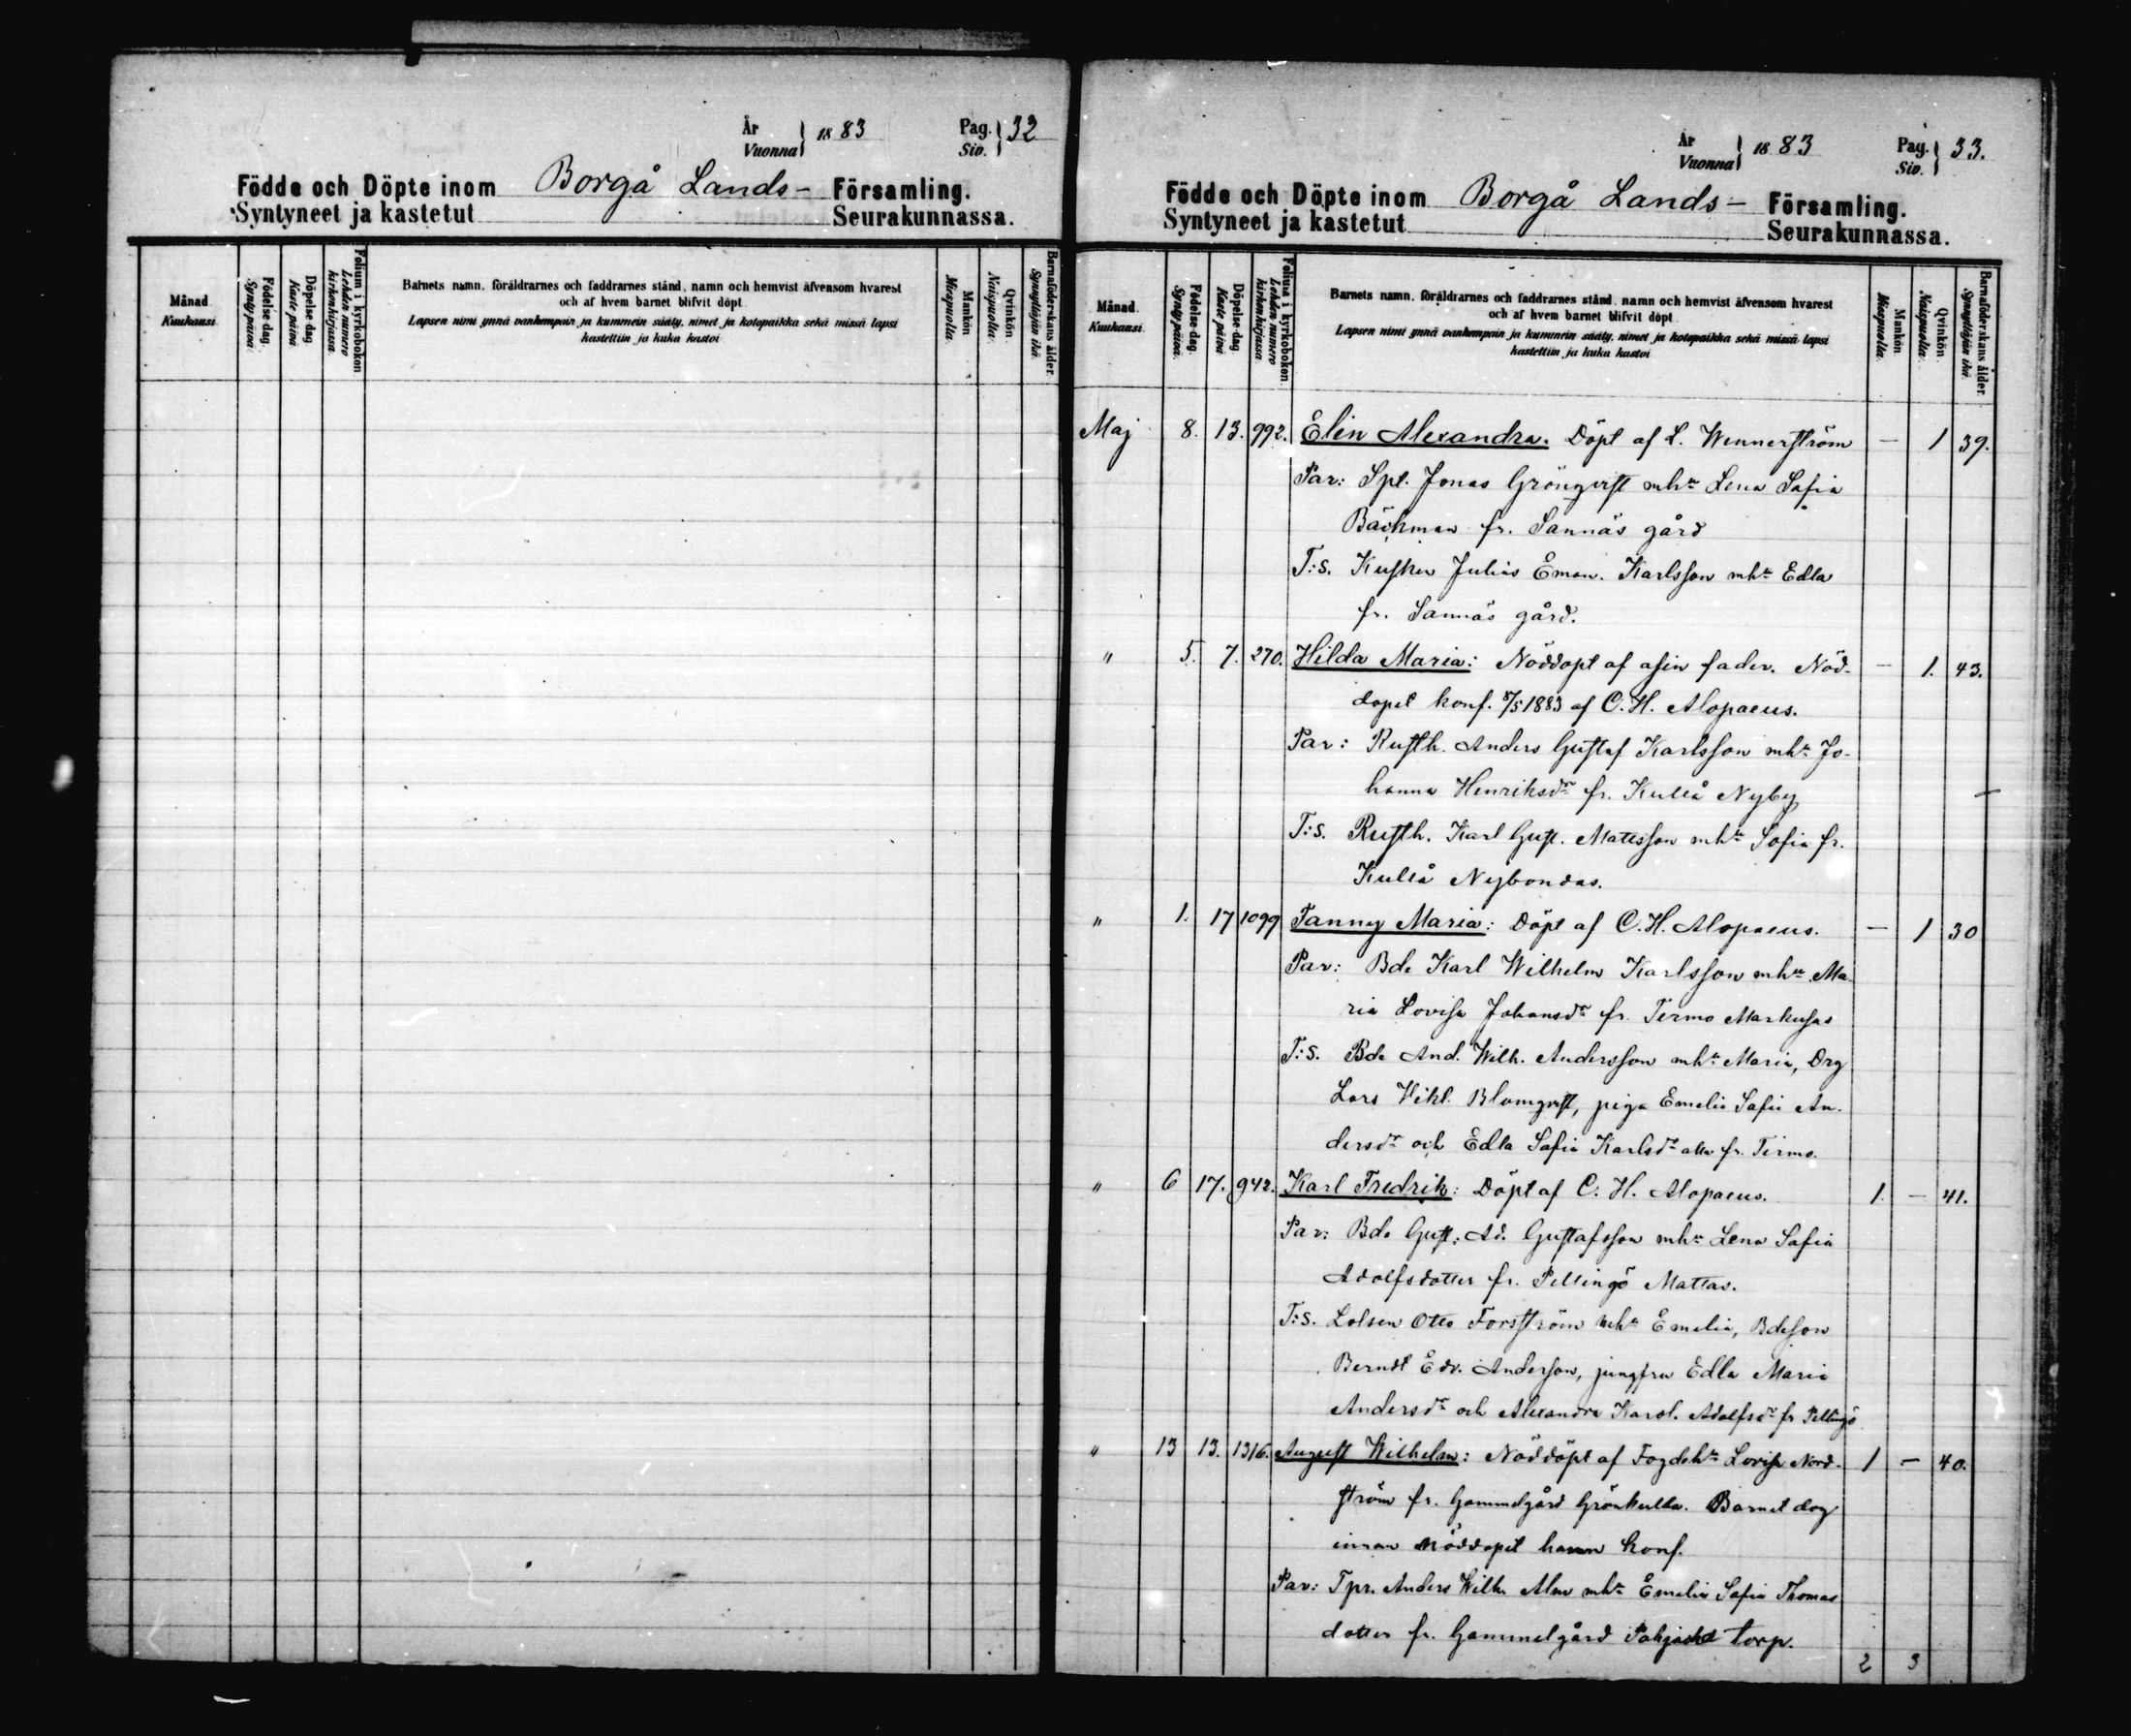 År
Vuonna } 1883 Pag.
Siv. } 32
Födde och Döpte inom Borgå Lands- Församling.
Syntyneet ja kastetut Seurakunnassa.
Månad
Kuukausi.
Födelse-dag.
Synty-päivä.
Döpelse-dag.
Kaste-päivä
Folium i kyrkoboken
Lehden numero
kirkonkirjassa.
Barnets namn, föräldrarnes och faddrarnes stånd, namn och hemvist äfvensom hvarest
och af hvem barnet blifvit döpt.
Lapsen nimi ynnä vanhempain ja kummein sääty, nimet ja kotopaikka sekä missä lapsi
kastettiin ja kuka kastoi.
Mankön
Miespuolta.
Qvinkön
Naispuolta.
Barnaföderskans ålder.
Synnyttäjän ikä.
År
Vuonna } 1883 Pag.
Siv. } 33.
Födde och Döpte inom Borgå Lands- Församling.
Syntyneet ja kastetut Seurakunnassa.
Månad
Kuukausi.
Födelse-dag.
Synty-päivä.
Döpelse-dag.
Kaste-päivä
Folium i kyrkoboken.
Lehden numero
kirkonkirjassa.
Barnets namn, föräldrarnes och faddrarnes stånd, namn och hemvist äfvensom hvarest
och af hvem barnet blifvit döpt.
Lapsen nimi ynnä vanhempain ja kummein sääty, nimet ja kotopaikka sekä missä lapsi
kastettiin ja kuka kastoi.
Mankön
Miespuolta.
Qvinkön
Naispuolta.
Barnaföderskans ålder.
Synnyttäjän ikä.
Maj 8. 13. 992. Elin Alexandra. Döpt af L. Wennerström — 1 39.
Par: Spt. Jonas Grönqvist mhu Lena Sofia
Bäckman fr. Sannäs gård
T:s. Kusken Julius Eman. Karlsson mhu Edla
fr. Sannäs gård.
" 5. 7. 270. Hilda Maria: Nöddöpt af sin fader. Nöd- — 1. 43.
dopet konf. 8/5 1883 af C. H. Alopaeus.
Par: Rusth. Anders Gustaf Karlsson mhu Jo-
hanna Henriksdr fr. Kullå Nyby
T:s. Rusth. Karl Gust. Mattsson mhu Sofia fr.
Kullå Nybondas.
" 1. 17 1099 Fanny Maria: Döpt af C. H. Alopaeus. — 1 30
Par: Bde Karl Wilhelm Karlsson mhu Ma-
ria Lovisa Johansdr fr. Tirmo Markusas
T:s. Bde And. Wilh. Andersson mhu Maria, Drg
Lars Vikt. Blomqvist, piga Emelie Sofie An-
dersdr och Edla Sofia Karlsdr alla fr. Tirmo.
" 6 17. 942. Karl Fredrik: Döpt af C. H. Alopaeus. 1. — 41.
Par: Bde Gust. Ad. Gustafsson mhu Lena Sofia
Adolfsdotter fr. Pellinge Mattas.
T:s. Lotsen Otto Forsström mhu Emelia, Bdeson
Berndt Edv. Andersson, jungfru Edla Maria
Andersdr och Alexandra Karol. Adolfsdr fr Pellinge
" 13 13. 1316. August Wilhelm: Nöddöpt af Fogdehu Lovisa Nord- 1 — 40.
ström fr. Gammelgård Grönkulla. Barnet dog
innan nöddopet hann konf.
Par: Tpr. Anders Wilh. Alm mhu Emelie Sofia Thomas
dotter fr. Gammelgård torp.
2 3